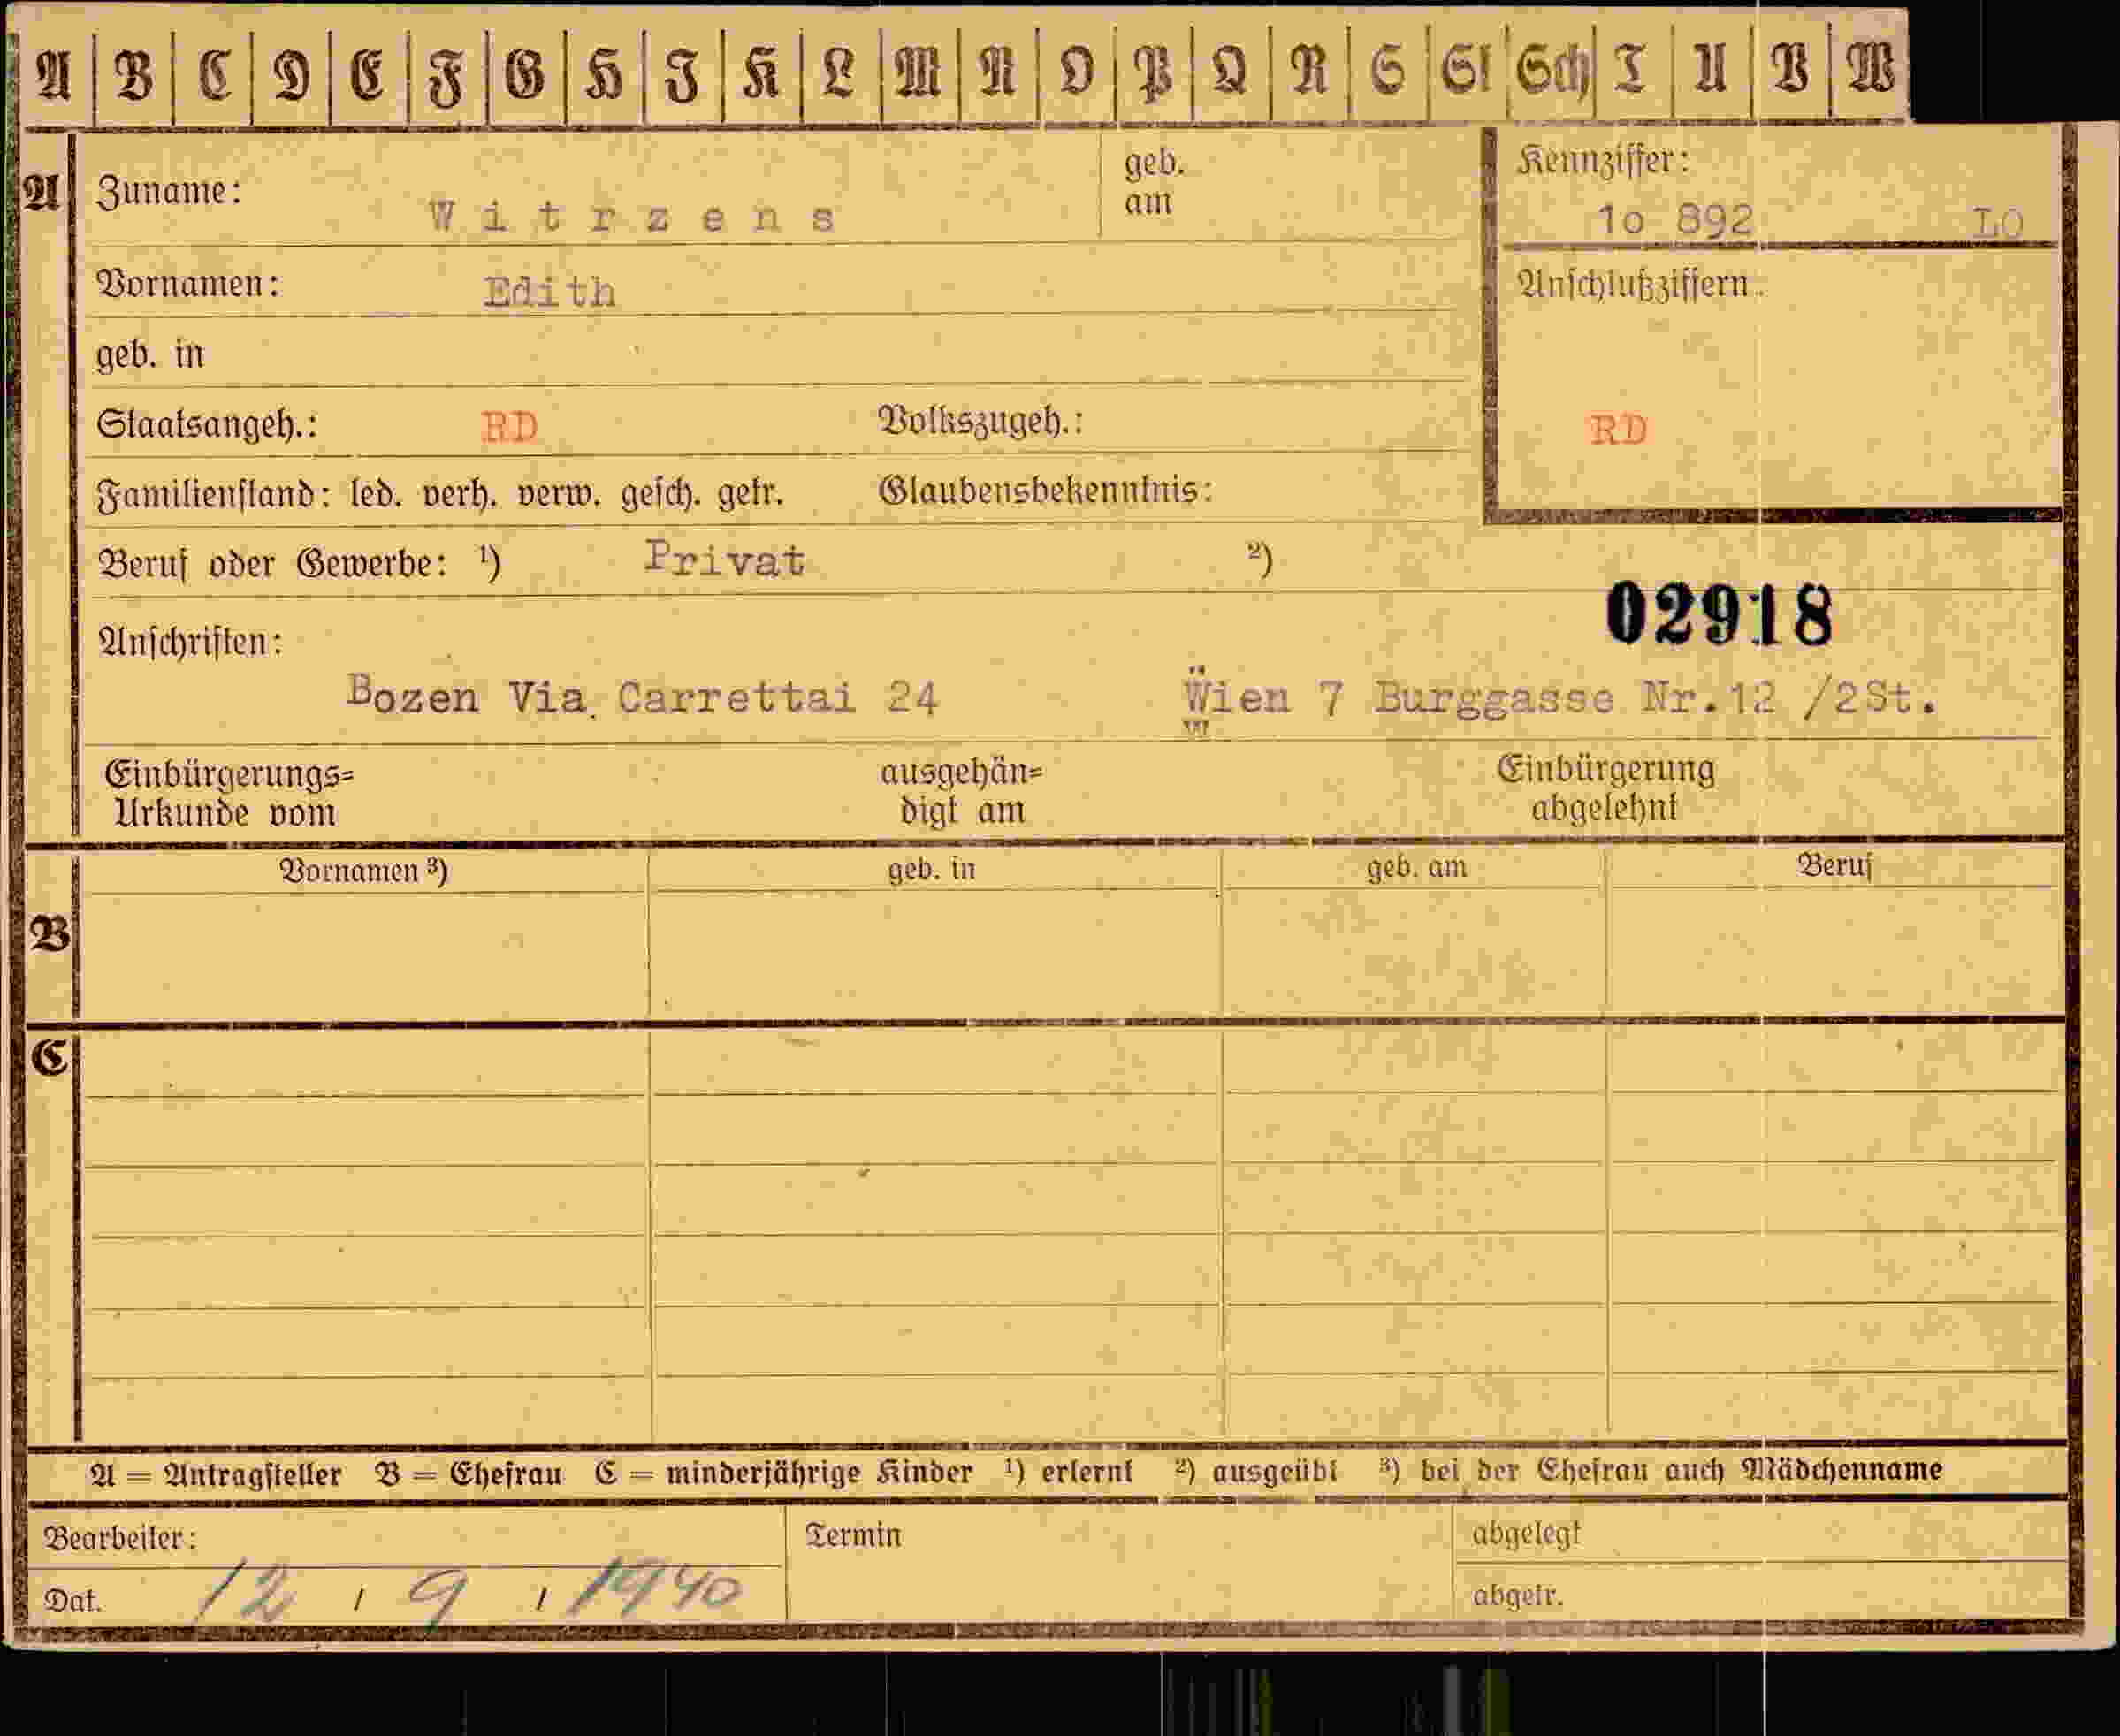 A B C D E F G H J K L M N O P Q R S St Sch T U V W
A Zuname: Witrzens geb. am Kennziffer: 1o 892 LO
Vornamen: Edith Anschlußziffern.
geb. in
Staatsangeh.: RD Volkszugeh.: RD
Familienstand: led. verh. verw. gesch. getr. Glaubensbekenntnis:
Beruf oder Gewerbe: ¹) Privat ²)
02918
Anschriften:
Bozen Via Carrettai 24 Wien 7 Burggasse Nr.12 /2St.
Einbürgerungs= ausgehän= Einbürgerung
Urkunde vom digt am abgelehnt
Vornamen ³) geb. in geb. am Beruf
B
C
A = Antragsteller B = Ehefrau C = minderjährige Kinder ¹) erlernt ²) ausgeübt ³) bei der Ehefrau auch Mädchenname
Bearbeiter: Termin abgelegt
Dat. 12 / 9 / 1940 abgetr.